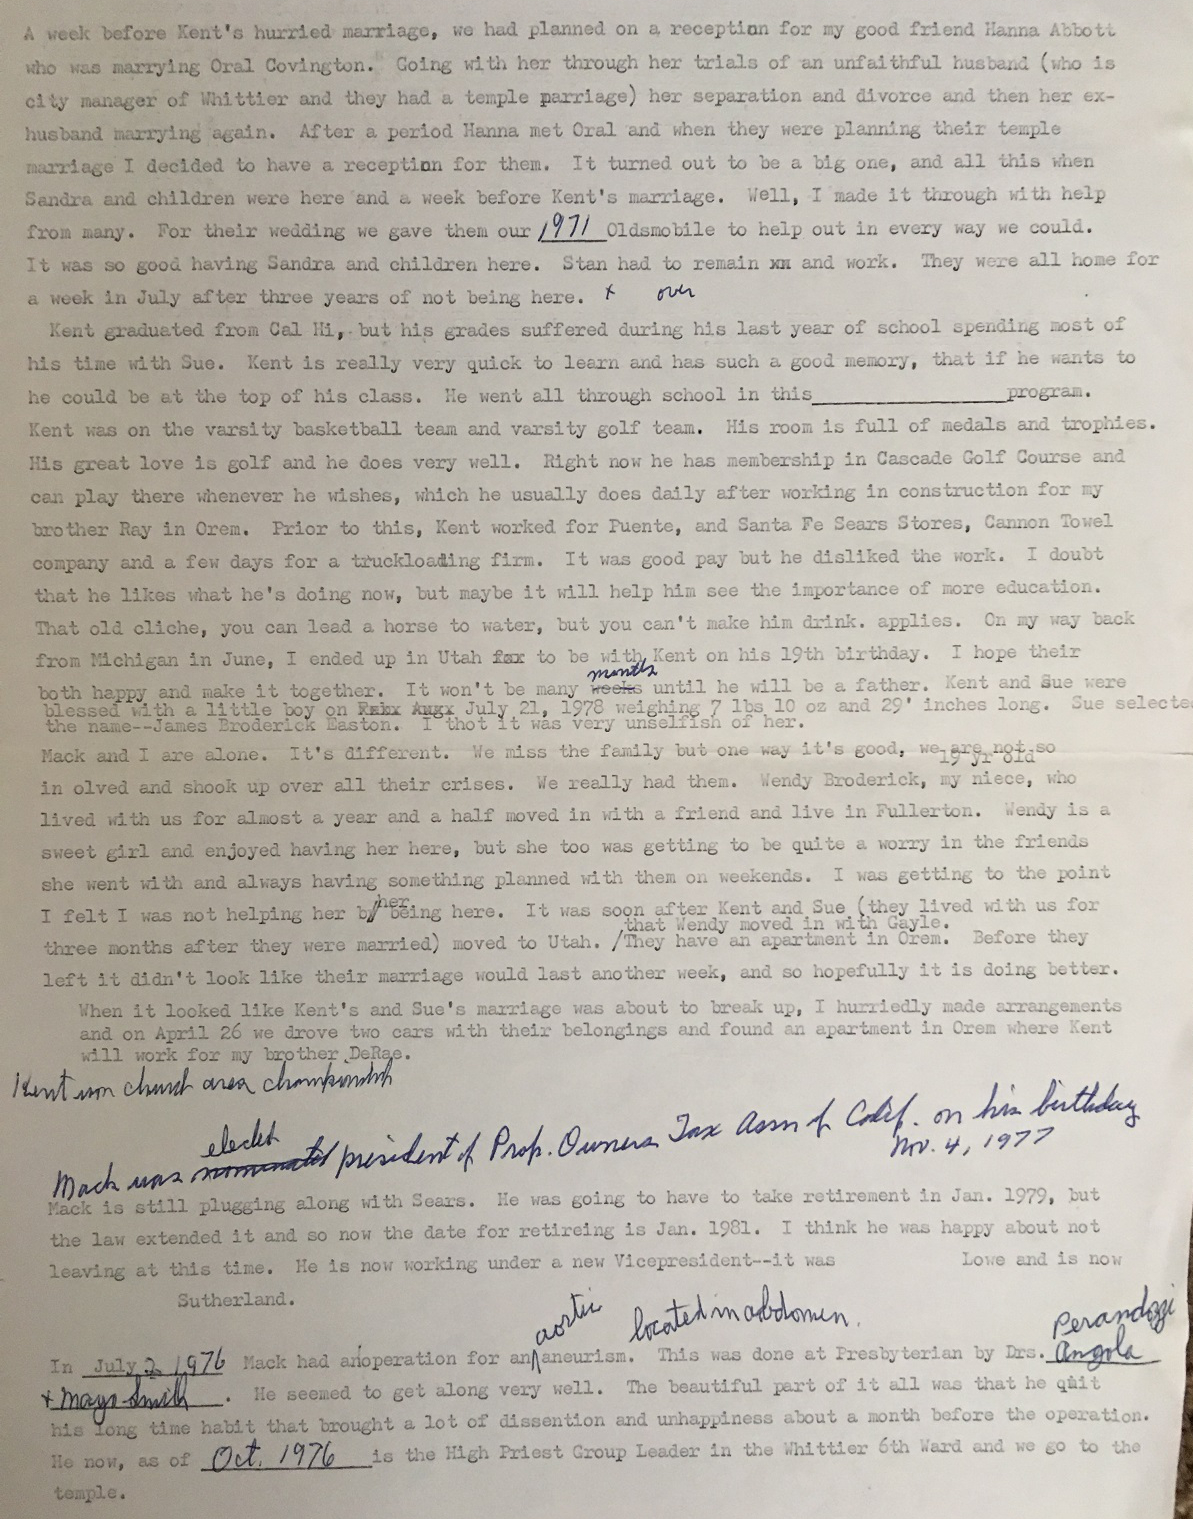 A week before Kent's hurried marriage, we had planned on a reception for my good friend Hanna Abbott
who was marrying Oral Covington. Going with her through her trials of an unfaithful husband (who is
city manager of Whittier and they had a temple parriage) her separation and divorce and then her ex-
husband marrying again. After a period Hanna met Oral and when they were planning their temple
marriage I decided to have a reception for them. It turned out to be a big one, and all this when
Sandra and children were here and a week before Kent's marriage. Well, I made it through with help
from many. For their wedding we gave them our 1971 Oldsmobile to help out in every way we could.
It was so good having Sandra and children here. Stan had to remain xx and work. They were all home for
a week in July after three years of not being here. x over
Kent graduated from Cal Hi, but his grades suffered during his last year of school spending most of
his time with Sue. Kent is really very quick to learn and has such a good memory, that if he wants to
he could be at the top of his class. He went all through school in this________________program.
Kent was on the varsity basketball team and varsity golf team. His room is full of medals and trophies.
His great love is golf and he does very well. Right now he has membership in Cascade Golf Course and
can play there whenever he wishes, which he usually does daily after working in construction for my
brother Ray in Orem. Prior to this, Kent worked for Puente, and Santa Fe Sears Stores, Cannon Towel
company and a few days for a truckloading firm. It was good pay but he disliked the work. I doubt
that he likes what he's doing now, but maybe it will help him see the importance of more education.
That old cliche, you can lead a horse to water, but you can't make him drink. applies. On my way back
from Michigan in June, I ended up in Utah fxx to be with Kent on his 19th birthday. I hope their
months
both happy and make it together. It won't be many weeks until he will be a father. Kent and Sue were
blessed with a little boy on July 21, 1978 weighing 7 lbs 10 oz and 29' inches long. Sue selected
the name--James Broderick Easton. I thot it was very unselfish of her.
Mack and I are alone. It's different. We miss the family but one way it's good, we are not so
19 yr old
in olved and shook up over all their crises. We really had them. Wendy Broderick, my niece, who
lived with us for almost a year and a half moved in with a friend and live in Fullerton. Wendy is a
sweet girl and enjoyed having her here, but she too was getting to be quite a worry in the friends
she went with and always having something planned with them on weekends. I was getting to the point
I felt I was not helping her by her being here. It was soon after Kent and Sue (they lived with us for
that Wendy moved in with Gayle.
three months after they were married) moved to Utah. /They have an apartment in Orem. Before they
left it didn't look like their marriage would last another week, and so hopefully it is doing better.
When it looked like Kent's and Sue's marriage was about to break up, I hurriedly made arrangements
and on April 26 we drove two cars with their belongings and found an apartment in Orem where Kent
will work for my brother DeRae.
Kent won church area championship
elected
Mack was nominated president of Prop. Owners Tax Assn of Calif. on his birthday
Nov. 4, 1977
Mack is still plugging along with Sears. He was going to have to take retirement in Jan. 1979, but
the law extended it and so now the date for retireing is Jan. 1981. I think he was happy about not
leaving at this time. He is now working under a new Vicepresident--it was Lowe and is now
Sutherland.
aortic located in abdomen. Perandozzi
In July 2, 1976 Mack had an operation for an aneurism. This was done at Presbyterian by Drs. Angola
+ Mayo Smith. He seemed to get along very well. The beautiful part of it all was that he quit
his long time habit that brought a lot of dissention and unhappiness about a month before the operation.
He now, as of Oct. 1976 is the High Priest Group Leader in the Whittier 6th Ward and we go to the
temple.